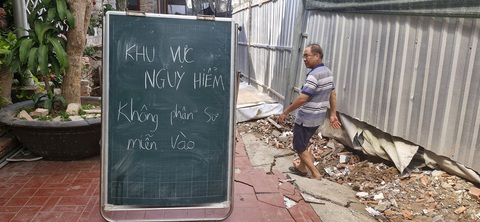 KHU VỰC
NGUY HIỂM
Không phận sự
miễn vào